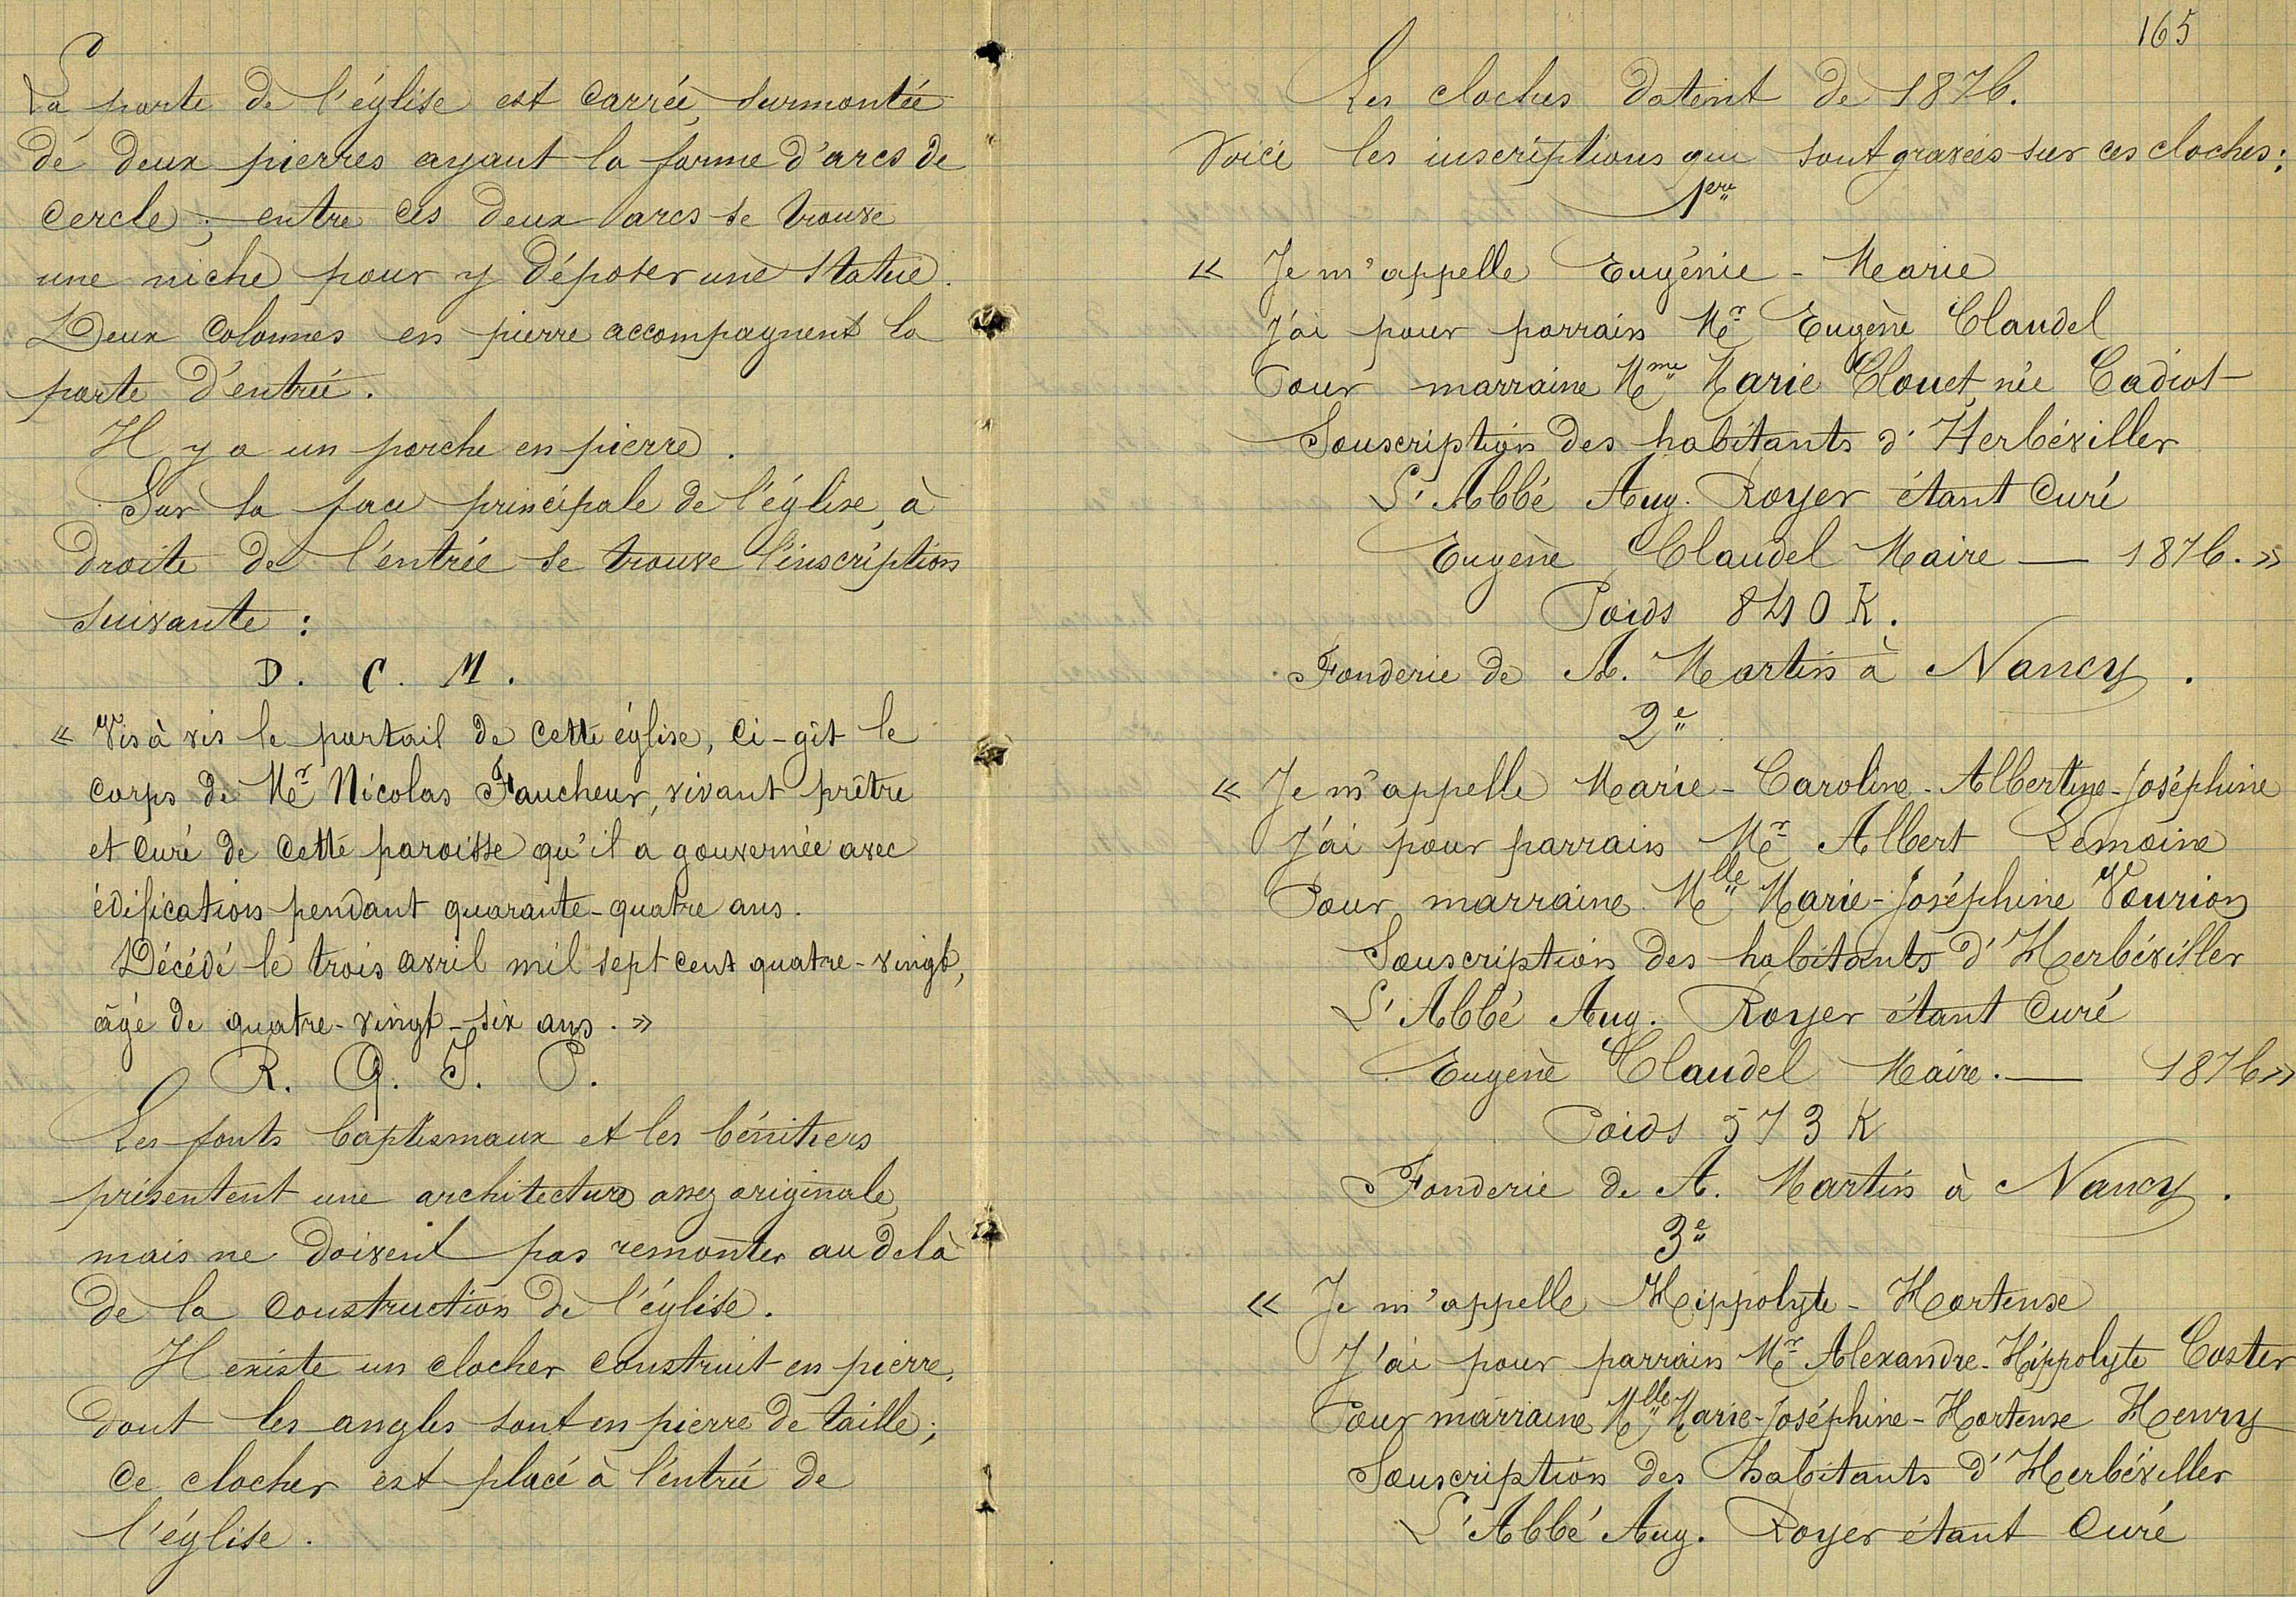 La porte de l'église est carrée, surmontée
de deux pierres ayant la forme d'arcs de
cercle ; entre ces deux arcs se trouve
une niche pour y déposer une statue.
Deux colonnes en pierre accompagnent la
porte d'entrée.
Il y a un porche en pierre.
Sur la face principale de l'église, à
droite de l'entrée se trouve l'inscription
suivante :
D. C. M.
« Vis à vis le portail de cette église, ci-gît le
corps de Mr Nicolas Faucheur, vivant prêtre
et curé de cette paroisse qu'il a gouvernée avec
édification pendant quarante-quatre ans.
Décédé le trois avril mil sept cent quatre-vingt,
âgé de quatre-vingt-six ans. »
R. Q. I. P.
Les fonts baptismaux et les bénitiers
présentent une architecture assez originale,
mais ne doivent pas remonter au delà
de la construction de l'église.
Il existe un clocher construit en pierre,
dont les angles sont en pierre de taille ;
ce clocher est placé à l'entrée de
l'église.
165
Les cloches datent de 1876.
Voici les inscriptions qui sont gravées sur ces cloches :
1ère
« Je m'appelle Eugénie - Marie
J'ai pour parrain Mr Eugène Claudel
Pour marraine Mme Marie Clouet, née Cadiot
Souscription des habitants d'Herbéviller
L'Abbé Aug. Royer étant Curé
Eugène Claudel Maire — 1876. »
Poids 840 K.
Fonderie de A. Martin à Nancy.
2e
« Je m'appelle Marie - Caroline - Albertine - Joséphine
J'ai pour parrain Mr Albert Lemoine
Pour marraine Mlle Marie-Joséphine Vourion
Souscription des habitants d'Herbéviller
L'Abbé Aug. Royer étant Curé
Eugène Claudel Maire. — 1876 »
Poids 573 K
Fonderie de A. Martin à Nancy.
3e
« Je m'appelle Hippolyte - Hortense
J'ai pour parrain Mr Alexandre-Hippolyte Coster
Pour marraine Mlle Marie-Joséphine-Hortense Henry
Souscription des habitants d'Herbéviller
L'Abbé Aug. Royer étant Curé